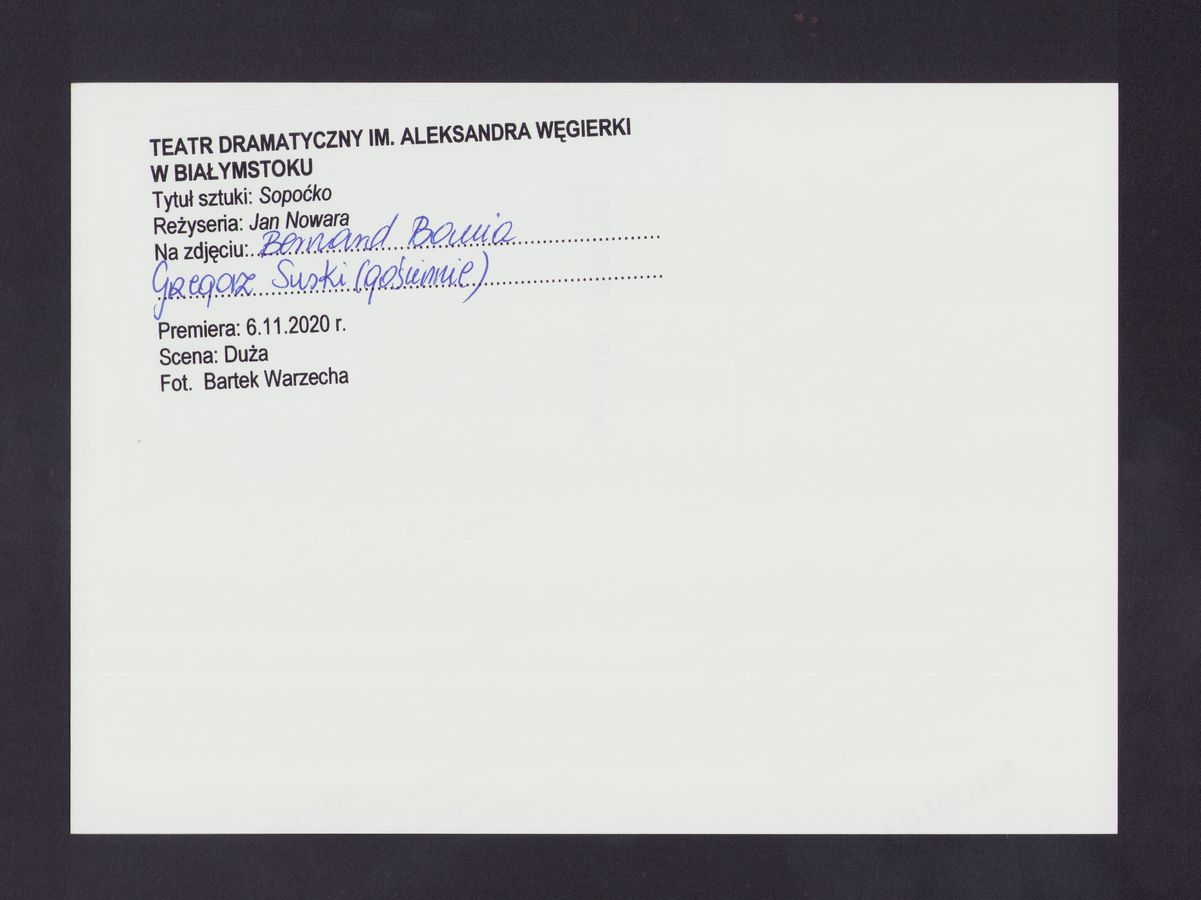 TEATR DRAMATYCZNY IM. ALEKSANDRA WĘGIERKI
W BIAŁYMSTOKU
Tytuł sztuki: Sopoćko
Reżyseria: Jan Nowara
Na zdjęciu: Bernard Bania
Grzegorz Suski (gościnnie)
Premiera: 6.11.2020 r.
Scena: Duża
Fot. Bartek Warzecha